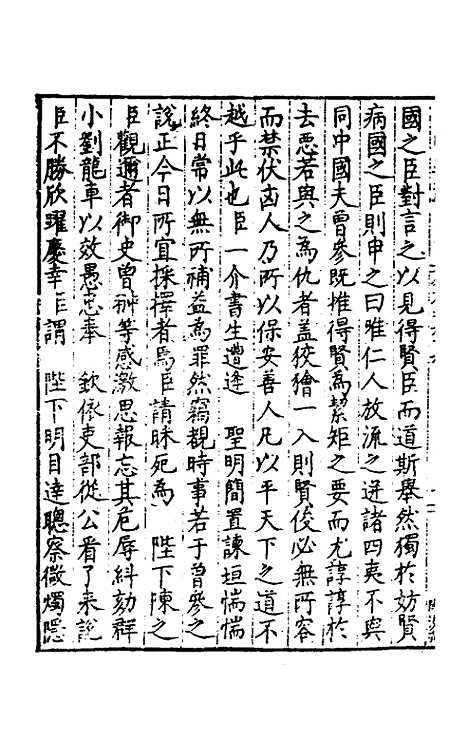 國之臣對言之以見得賢臣而道斯舉然獨於妨賢
病國之臣則申之曰唯仁人放流之迸諸四夷不與
同中國夫曾參既推得賢為絜矩之要而尤諄諄於
去惡若與之為仇者盖狡獪一入則賢俊必無所容
而禁伏凶人乃所以保安善人凡以平天下之道不
越乎此也臣一介書生遭逢　聖明簡置諫垣惴惴
終日常以無所補益為罪然竊觀時事若于曾參之
說正今日所宜採擇者焉臣請昧死為　陛下陳之
臣觀邇者御史曾翀等感激思報忘其危辱糾劾群
小劉龍車以效愚忠奉　欽依吏部從公看了来說
臣不勝欣躍慶幸臣謂　陛下明目達聰察微燭隱